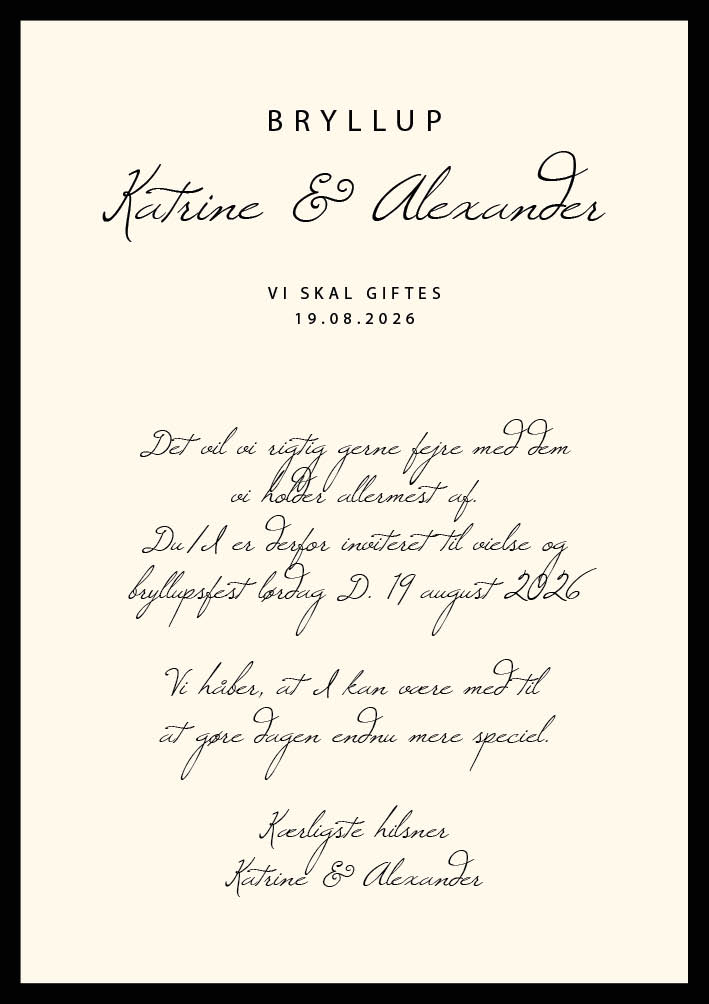 BRYLLUP
Katrine & Alexander
VI SKAL GIFTES
19.08.2026
Det vil vi rigtig gerne fejre med dem
vi holder allermest af.
Du/I er derfor inviteret til vielse og
bryllupsfest lørdag D. 19 august 2026
Vi håber, at I kan være med til
at gøre dagen endnu mere speciel.
Kærligste hilsner
Katrine & Alexander